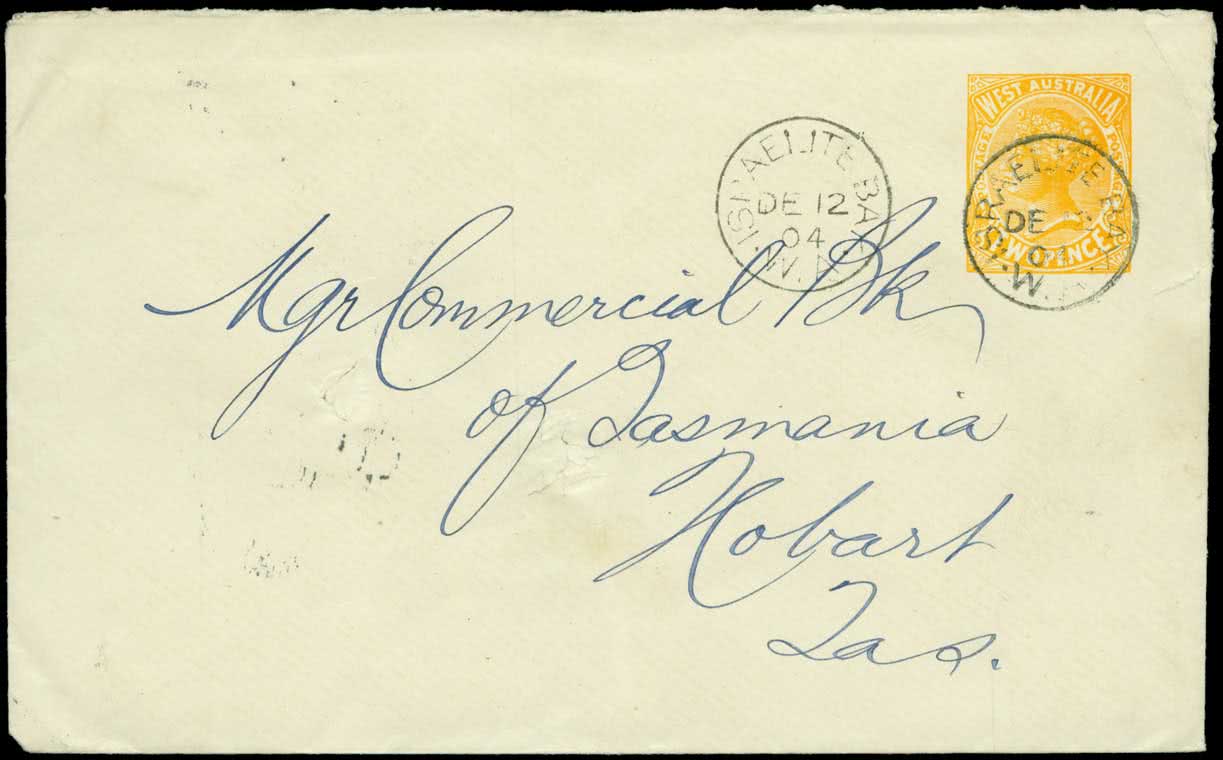 WEST AUSTRALIA
POSTAGE POSTAGE
TWOPENCE
ISRAELITE BAY
DE 12
04
W.A
ISRAELITE BAY
DE
04
W.A
Mgr Commercial Bk
of Tasmania
Hobart
Tas.